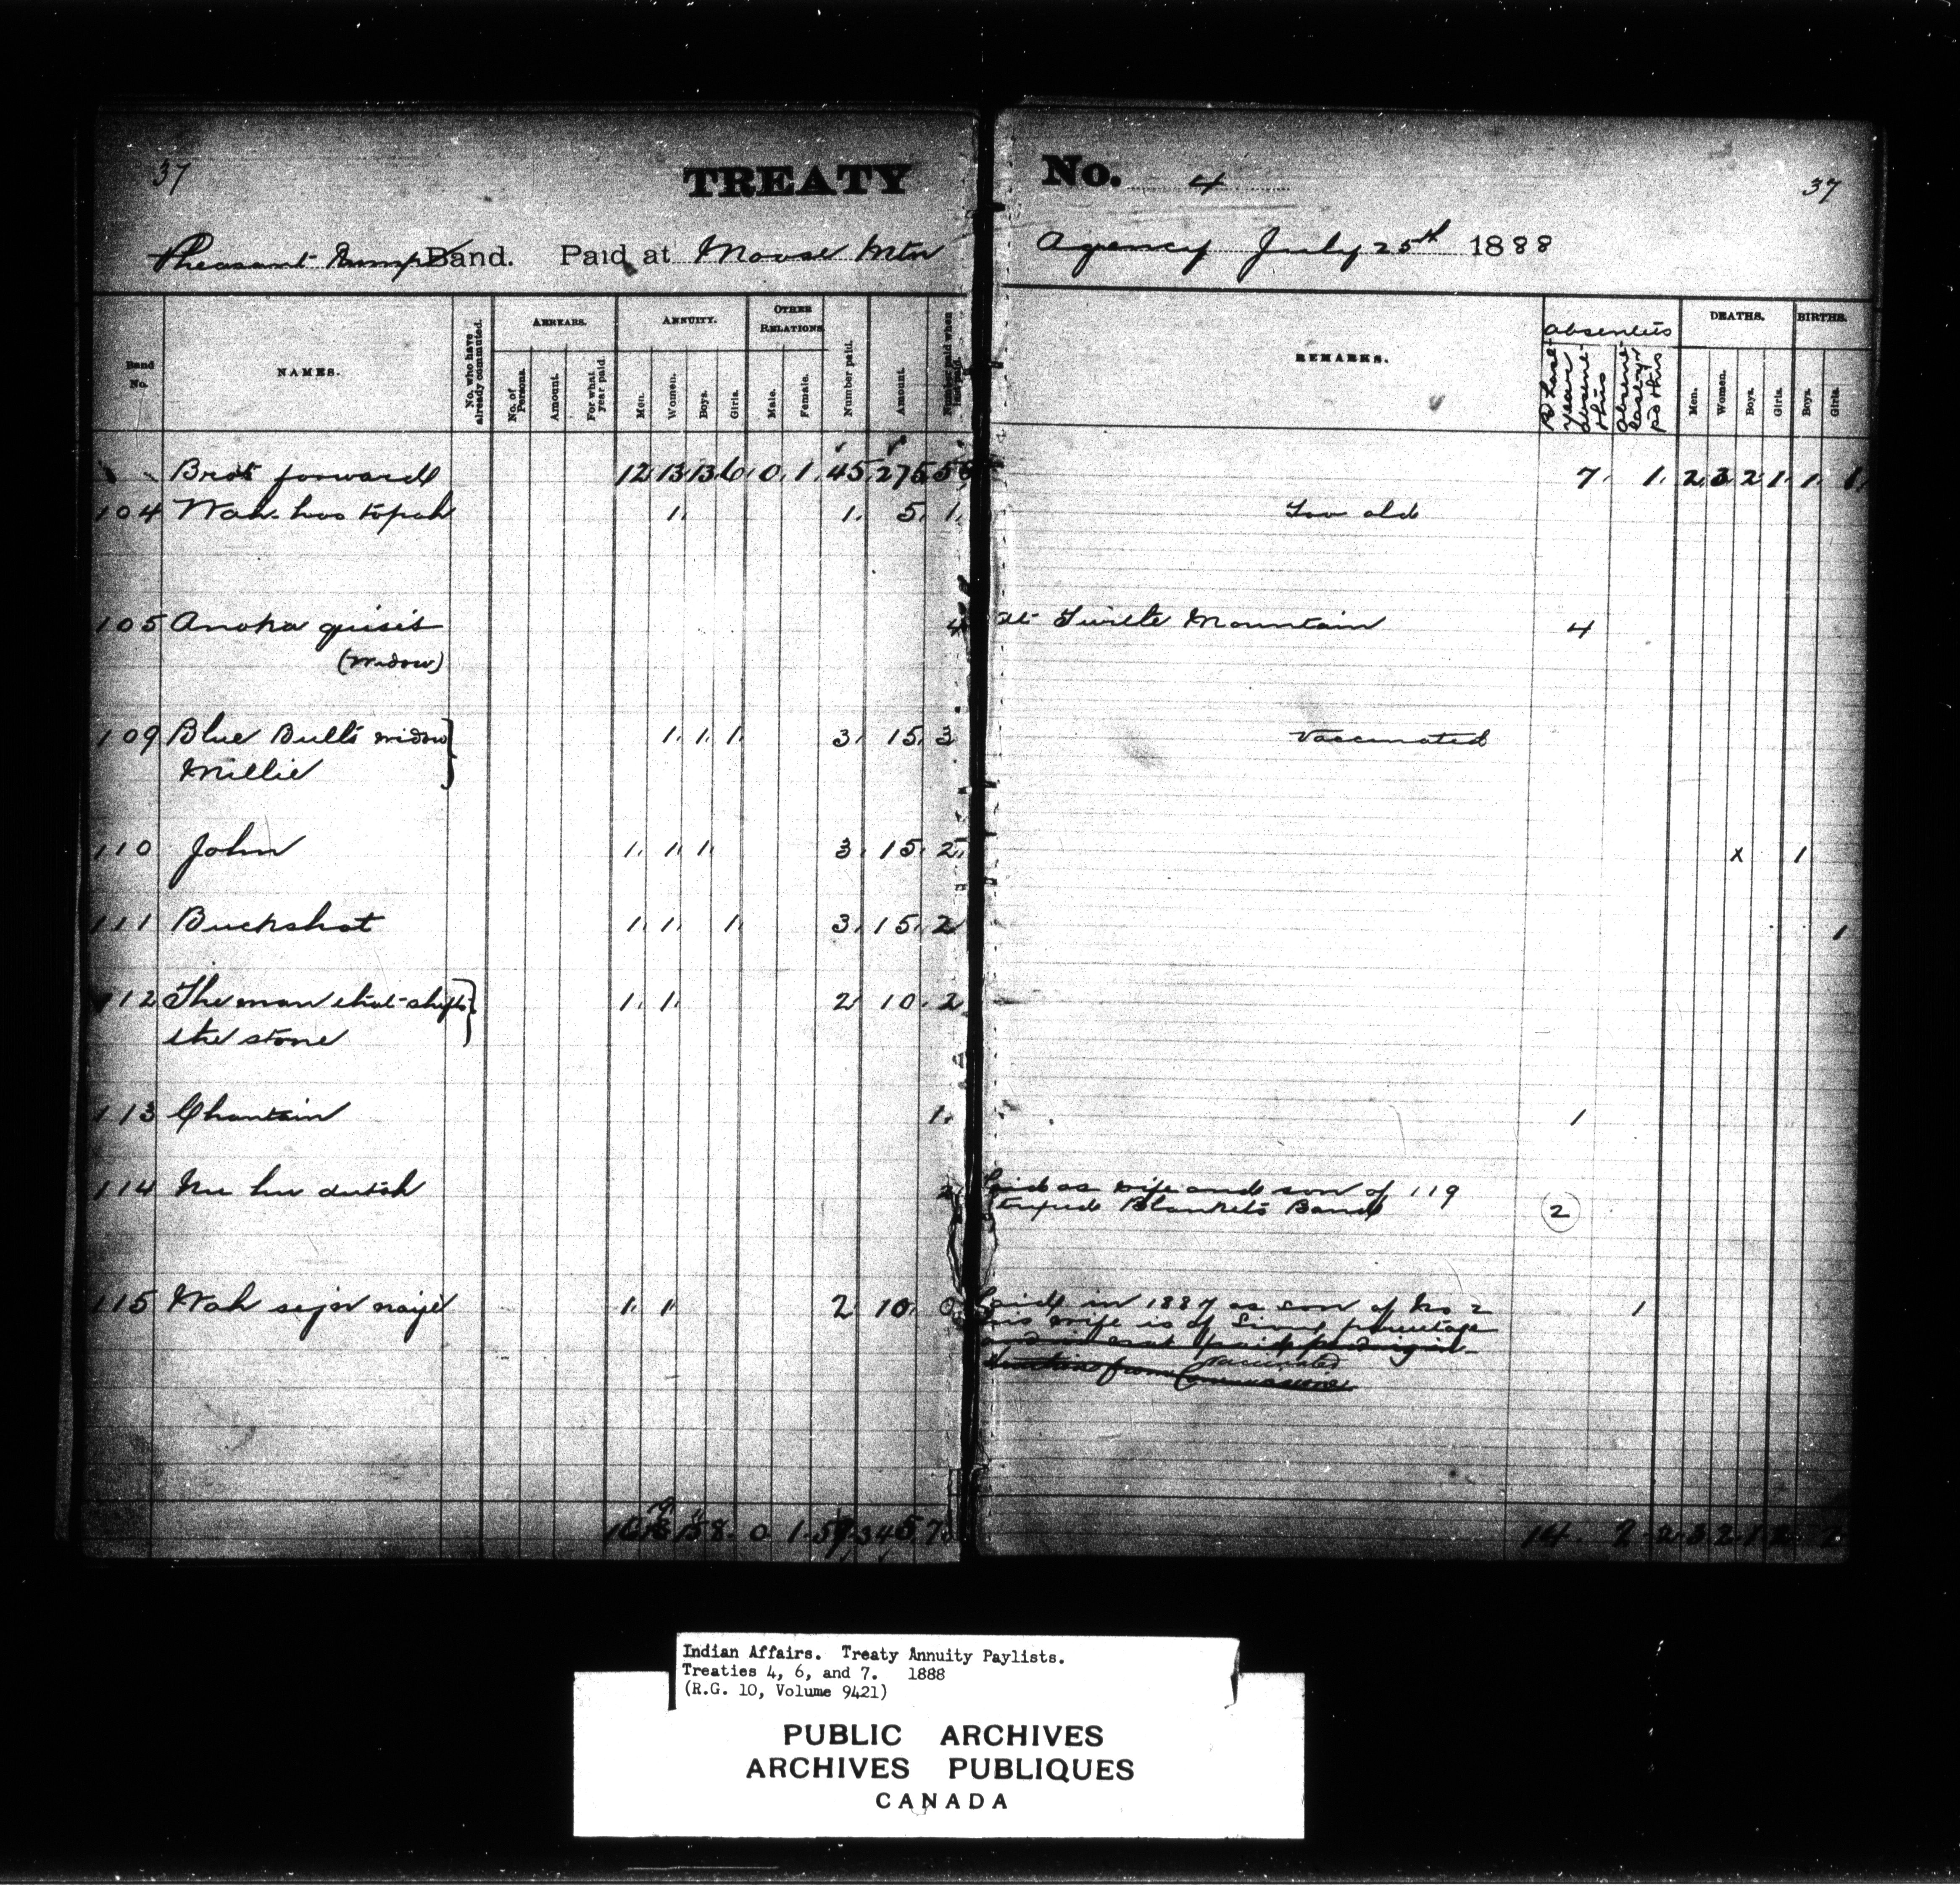 37
TREATY No. 4
37
Pheasant Rump Band. Paid at Moose Mtn Agency July 25th 1888
Band No.
NAMES.
No. who have already commuted.
ARREARS.
No. of Persons.
Amount.
For what year paid.
ANNUITY.
Men.
Women.
Boys.
Girls.
OTHER RELATIONS
Male.
Female.
Number paid.
Amount.
Number paid when last paid.
REMARKS.
absentees
DEATHS.
Men.
Women.
Boys.
Girls.
BIRTHS.
Boys.
Girls.
Brot forward 12 13 13 6 0 1 45 275 7 1 2 3 2 1 1 1
104 Wah-hoo topah 1 1 5 1 Too old
105 4 At Turtle Mountain 4
(widow)
109 Blue Bull's widow 1 1 1 3 15 3 Vaccinated
Millie
110 John 1 1 1 3 15 2 x 1
111 Buckshot 1 1 1 3 15 2 1
112 The man that shifts 1 1 2 10 2
the stone
113 1 1
114 2 Paid as wife and son of 119
Striped Blankets Band 2
115 1 1 2 10 0 Paid in 1887 as son of No 2 1
his wife is of Sioux parentage
vaccinated
8 0 1 345 14 2 2 3 2 1 2 2
Indian Affairs. Treaty Annuity Paylists.
Treaties 4, 6, and 7. 1888
(R.G. 10, Volume 9421)
PUBLIC ARCHIVES
ARCHIVES PUBLIQUES
CANADA